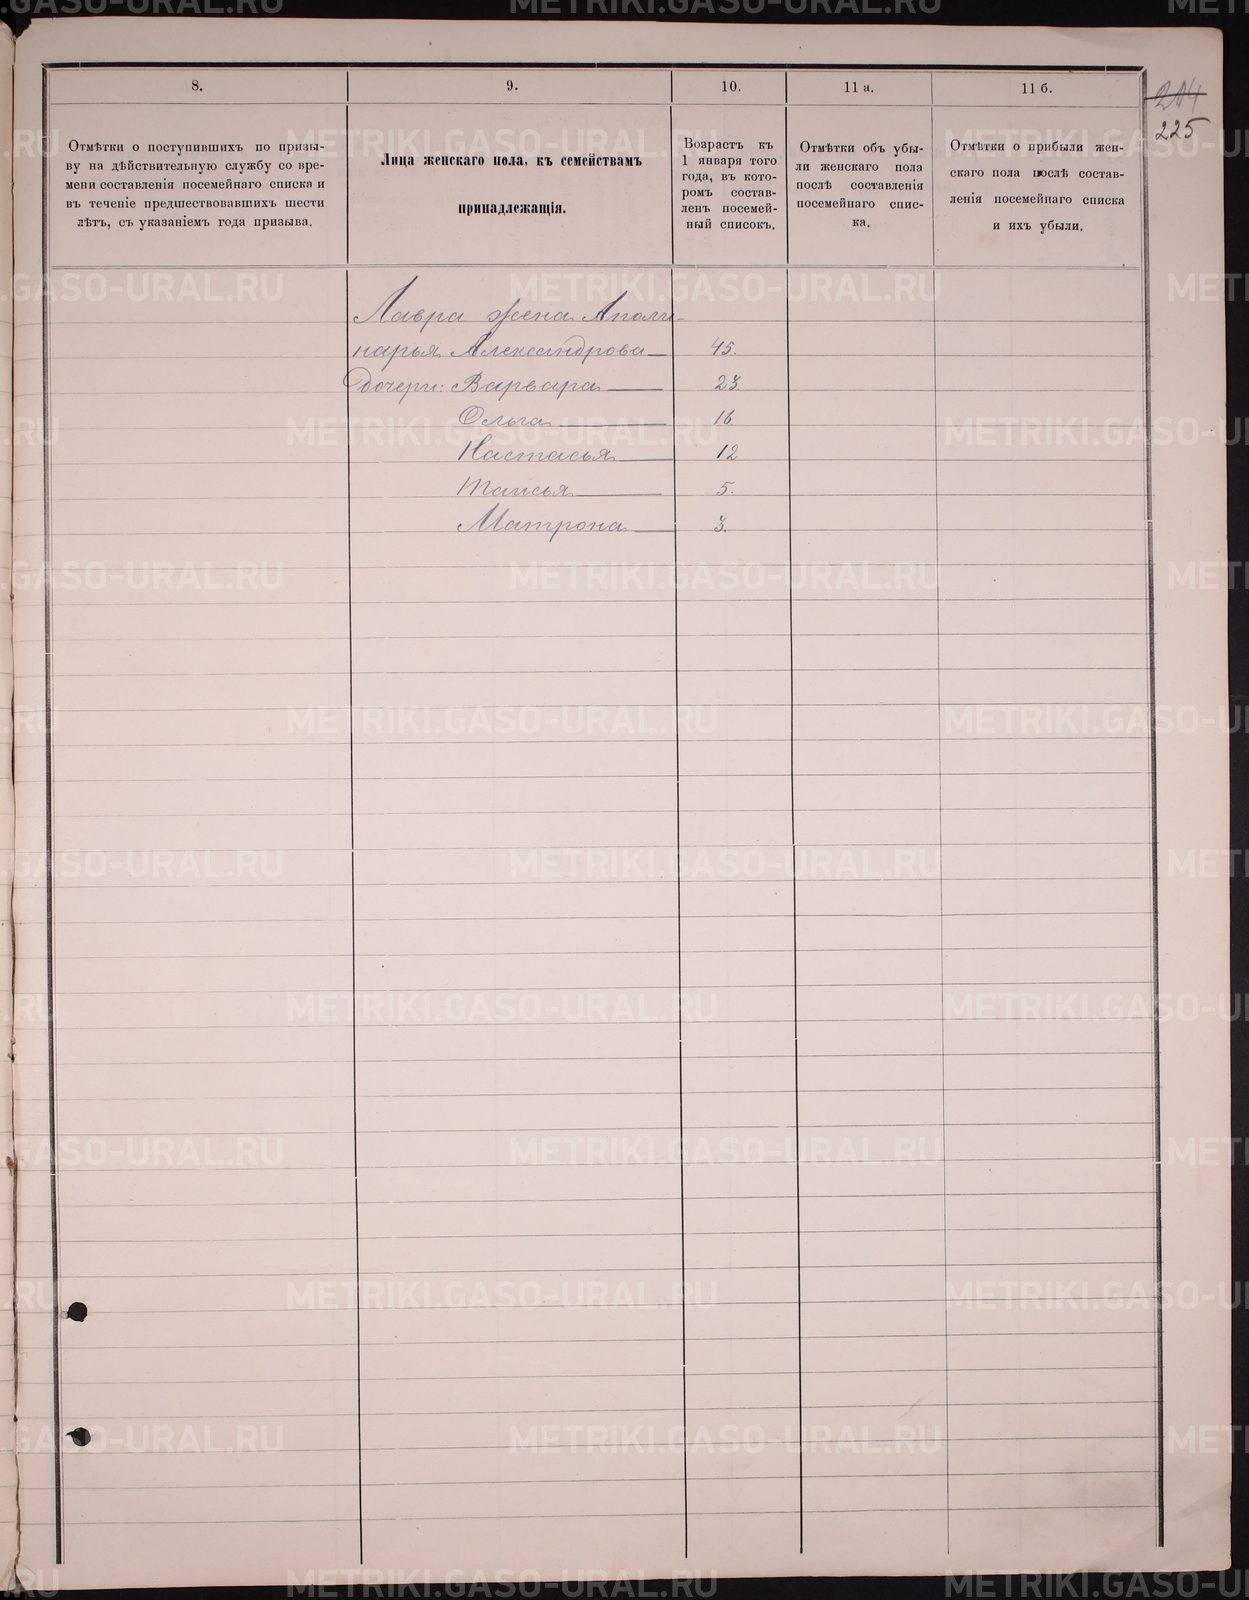 8.
9.
10.
11 а.
11 б.
204
225
Отмѣтки о поступившихъ по призы-
ву на дѣйствительную службу со вре-
мени составленія посемейнаго списка и
въ теченіе предшествовавшихъ шести
лѣтъ, съ указаніемъ года призыва.
Лица женскаго пола, къ семействамъ
принадлежащія.
Возрастъ къ
1 января того
года, въ кото-
ромъ состав-
ленъ посемей-
ный списокъ.
Отмѣтки объ убы-
ли женскаго пола
послѣ составленія
посемейнаго спис-
ка.
Отмѣтки о прибыли жен-
скаго пола послѣ состав-
ленія посемейнаго списка
и ихъ убыли.
Лавра жена Аполли-
нарья Александрова 45.
дочери: Варвара 23.
Ольга 16
Настасья 12
Таисья 5.
Матрона 3.
METRIKI.GASO-URAL.RU